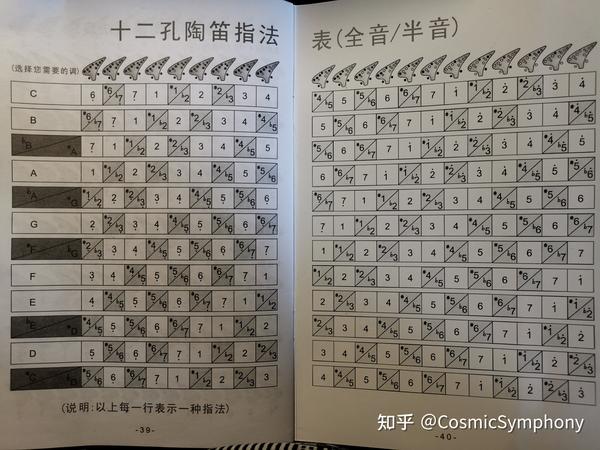 十二孔陶笛指法
(选择您需要的调)
C 6 #6/b7 7 1 #1/b2 2 #2/b3 3 4
B #6/b7 7 1 #1/b2 2 #2/b3 3 4 #4/b5
bB #A 7 1 #1/b2 2 #2/b3 3 4 #4/b5 5
A 1 #1/b2 2 #2/b3 3 4 #4/b5 5 #5/b6
bA #G #1/b2 2 #2/b3 3 4 #4/b5 5 #5/b6 6
G 2 #2/b3 3 4 #4/b5 5 #5/b6 6 #6/b7
#F bG #2/b3 3 4 #4/b5 5 #5/b6 6 #6/b7 7
F 3 4 #4/b5 5 #5/b6 6 #6/b7 7 1
E 4 #4/b5 5 #5/b6 6 #6/b7 7 1 #1/b2
bE #D #4/b5 5 #5/b6 6 #6/b7 7 1 #1/b2 2
D 5 #5/b6 6 #6/b7 7 1 #1/b2 2 #2/b3
#C bD #5/b6 6 #6/b7 7 1 #1/b2 2 #2/b3 3
(说明:以上每一行表示一种指法)
-39-
表(全音/半音)
#4/b5 5 #5/b6 6 #6/b7 7 1 #1/b2 2 #2/b3 3 4
5 #5/b6 6 #6/b7 7 1 #1/b2 2 #2/b3 3 4 #4/b5
#5/b6 6 #6/b7 7 1 #1/b2 2 #2/b3 3 4 #4/b5 5
6 #6/b7 7 1 #1/b2 2 #2/b3 3 4 #4/b5 5 #5/b6
#6/b7 7 1 #1/b2 2 #2/b3 3 4 #4/b5 5 #5/b6 6
7 1 #1/b2 2 #2/b3 3 4 #4/b5 5 #5/b6 6 #6/b7
1 #1/b2 2 #2/b3 3 4 #4/b5 5 #5/b6 6 #6/b7 7
#1/b2 2 #2/b3 3 4 #4/b5 5 #5/b6 6 #6/b7 7 1
2 #2/b3 3 4 #4/b5 5 #5/b6 6 #6/b7 7 1 #1/b2
#2/b3 3 4 #4/b5 5 #5/b6 6 #6/b7 7 1 #1/b2 2
3 4 #4/b5 5 #5/b6 6 #6/b7 7 1 #1/b2 2 #2/b3
4 #4/b5 5 #5/b6 6 #6/b7 7 1 #1/b2 2 #2/b3 3
-40-
知乎 @CosmicSymphony